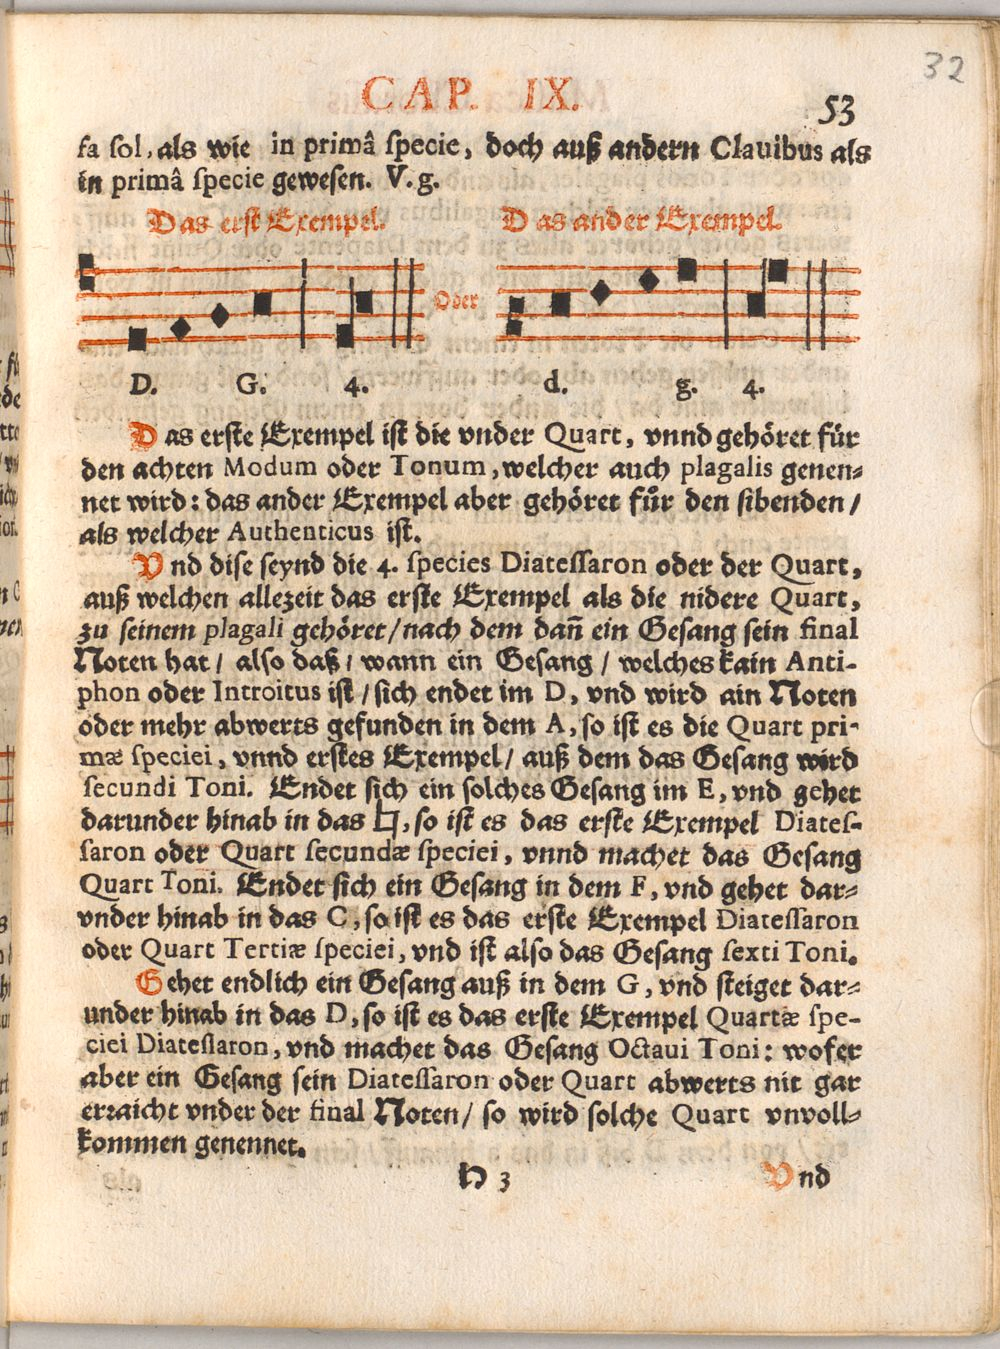 32
CAP. IX. 53
fa sol, als wie in primâ specie, doch auß andern Clauibus als
in primâ specie gewesen. V. g.
Das erst Exempel. Das ander Exempel.
Oder
D. G. 4. d. g. 4.
Das erste Exempel ist die vnder Quart, vnnd gehöret für
den achten Modum oder Tonum, welcher auch plagalis genen-
net wird: das ander Exempel aber gehöret für den sibenden/
als welcher Authenticus ist.
Vnd dise seynd die 4. species Diatessaron oder der Quart,
auß welchen allezeit das erste Exempel als die nidere Quart,
zu seinem plagali gehöret/nach dem dañ ein Gesang sein final
Noten hat/ also daß/ wann ein Gesang/ welches kain Anti-
phon oder Introitus ist/sich endet im D, vnd wird ain Noten
oder mehr abwerts gefunden in dem A, so ist es die Quart pri-
mæ speciei, vnnd erstes Exempel/ auß dem das Gesang wird
secundi Toni. Endet sich ein solches Gesang im E, vnd gehet
darunder hinab in das ♮, so ist es das erste Exempel Diates-
saron oder Quart secundæ speciei, vnnd machet das Gesang
Quart Toni. Endet sich ein Gesang in dem F, vnd gehet dar-
vnder hinab in das C, so ist es das erste Exempel Diatessaron
oder Quart Tertiæ speciei, vnd ist also das Gesang sexti Toni.
Gehet endlich ein Gesang auß in dem G, vnd steiget dar-
under hinab in das D, so ist es das erste Exempel Quartæ spe-
ciei Diatessaron, vnd machet das Gesang Octaui Toni: wofer
aber ein Gesang sein Diatessaron oder Quart abwerts nit gar
erraicht vnder der final Noten/ so wird solche Quart vnvoll-
kommen genennet.
H 3 Vnd